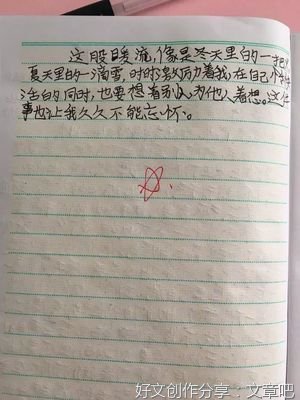 这股暖流,像是冬天里的一把
夏天里的一滴雪,时时激励着我,在自己
活的同时,也要想着别人,为他人着想。这件
事也让我久久不能忘怀。
好文创作分享:文章吧